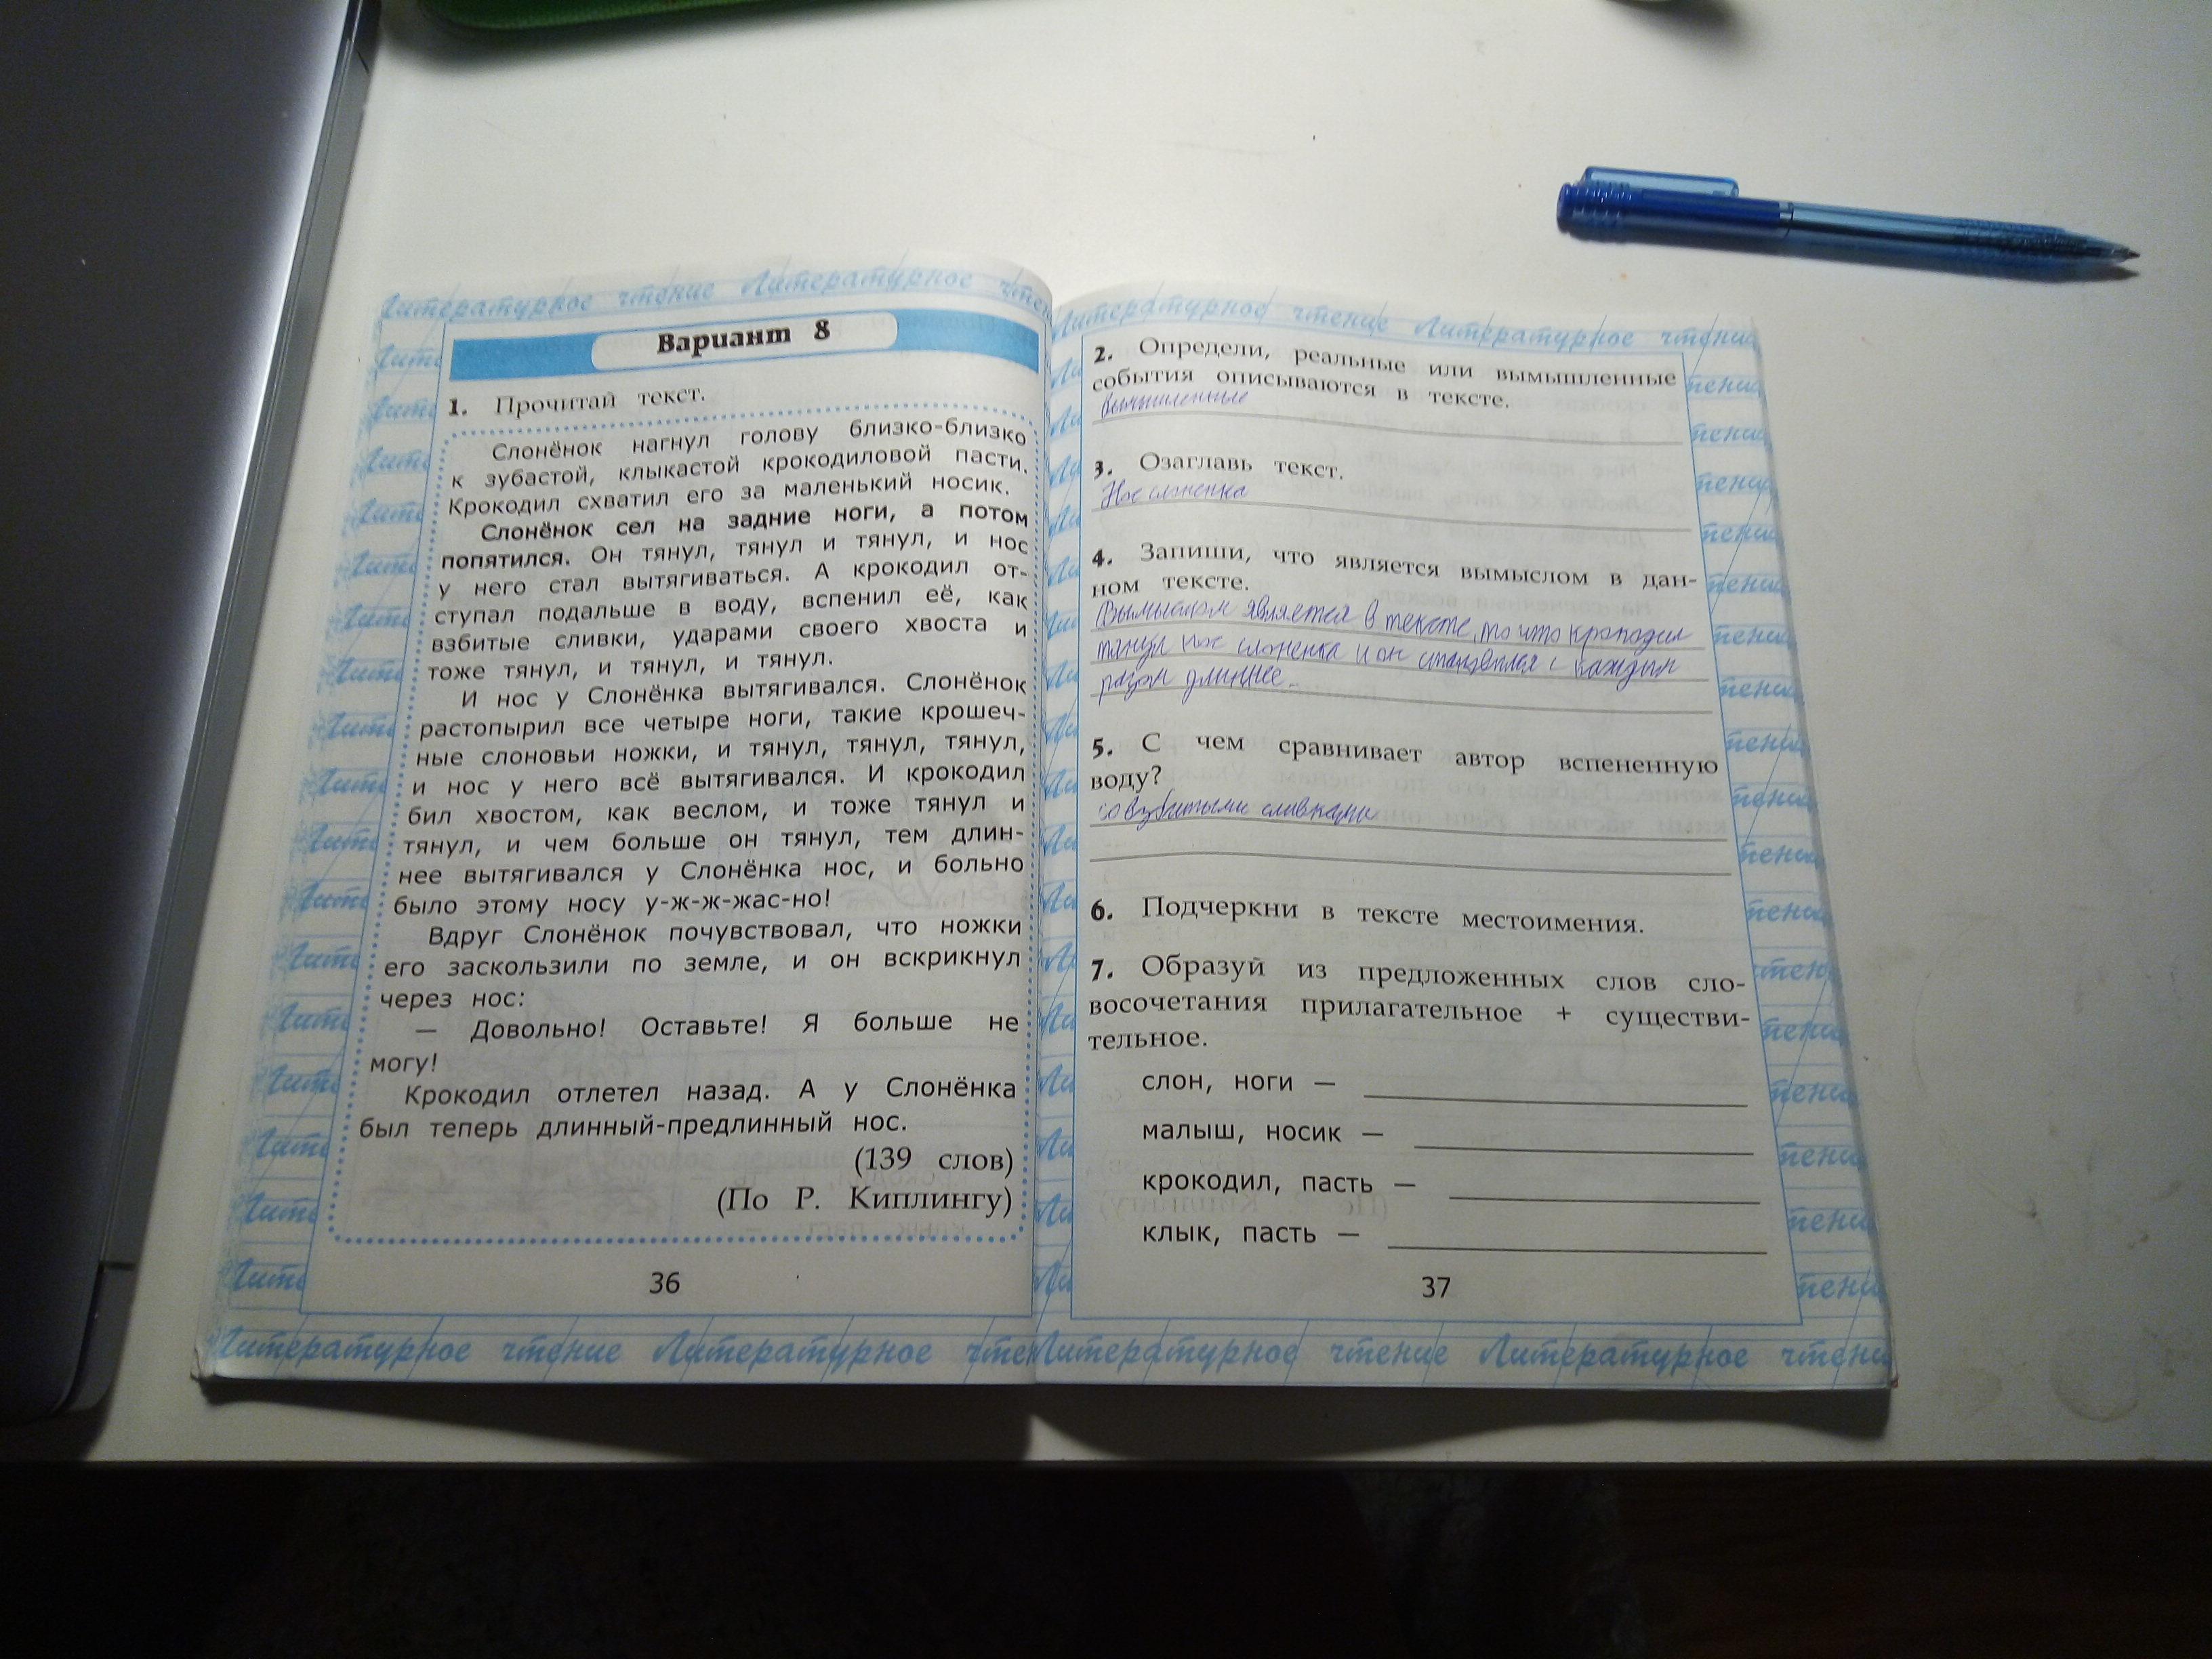 Литературное чтение Литературное чтен
Вариант 8
1. Прочитай текст.
Слонёнок нагнул голову близко-близко
к зубастой, клыкастой крокодиловой пасти.
Крокодил схватил его за маленький носик.
Слонёнок сел на задние ноги, а потом
попятился. Он тянул, тянул и тянул, и нос
у него стал вытягиваться. А крокодил от-
ступал подальше в воду, вспенил её, как
взбитые сливки, ударами своего хвоста и
тоже тянул, и тянул, и тянул.
И нос у Слонёнка вытягивался. Слонёнок
растопырил все четыре ноги, такие крошеч-
ные слоновьи ножки, и тянул, тянул, тянул,
и нос у него всё вытягивался. И крокодил
бил хвостом, как веслом, и тоже тянул и
тянул, и чем больше он тянул, тем длин-
нее вытягивался у Слонёнка нос, и больно
было этому носу у-ж-ж-жас-но!
Вдруг Слонёнок почувствовал, что ножки
его заскользили по земле, и он вскрикнул
через нос:
— Довольно! Оставьте! Я больше не
могу!
Крокодил отлетел назад. А у Слонёнка
был теперь длинный-предлинный нос.
(139 слов)
(По Р. Киплингу)
36
Литературное чтение Литературное чтен
Литературное чтение Литературное чтени
2. Определи, реальные или вымышленные
события описываются в тексте.
вымышленные
3. Озаглавь текст.
Нос слоненка
4. Запиши, что является вымыслом в дан-
ном тексте.
Вымыслом является в тексте, то что крокодил
тянул нос слоненка и он становился с каждым
разом длиннее.
5. С чем сравнивает автор вспененную
воду?
со взбитыми сливками
6. Подчеркни в тексте местоимения.
7. Образуй из предложенных слов сло-
восочетания прилагательное + существи-
тельное.
слон, ноги —
малыш, носик —
крокодил, пасть —
клык, пасть —
37
Литературное чтение Литературное чтени